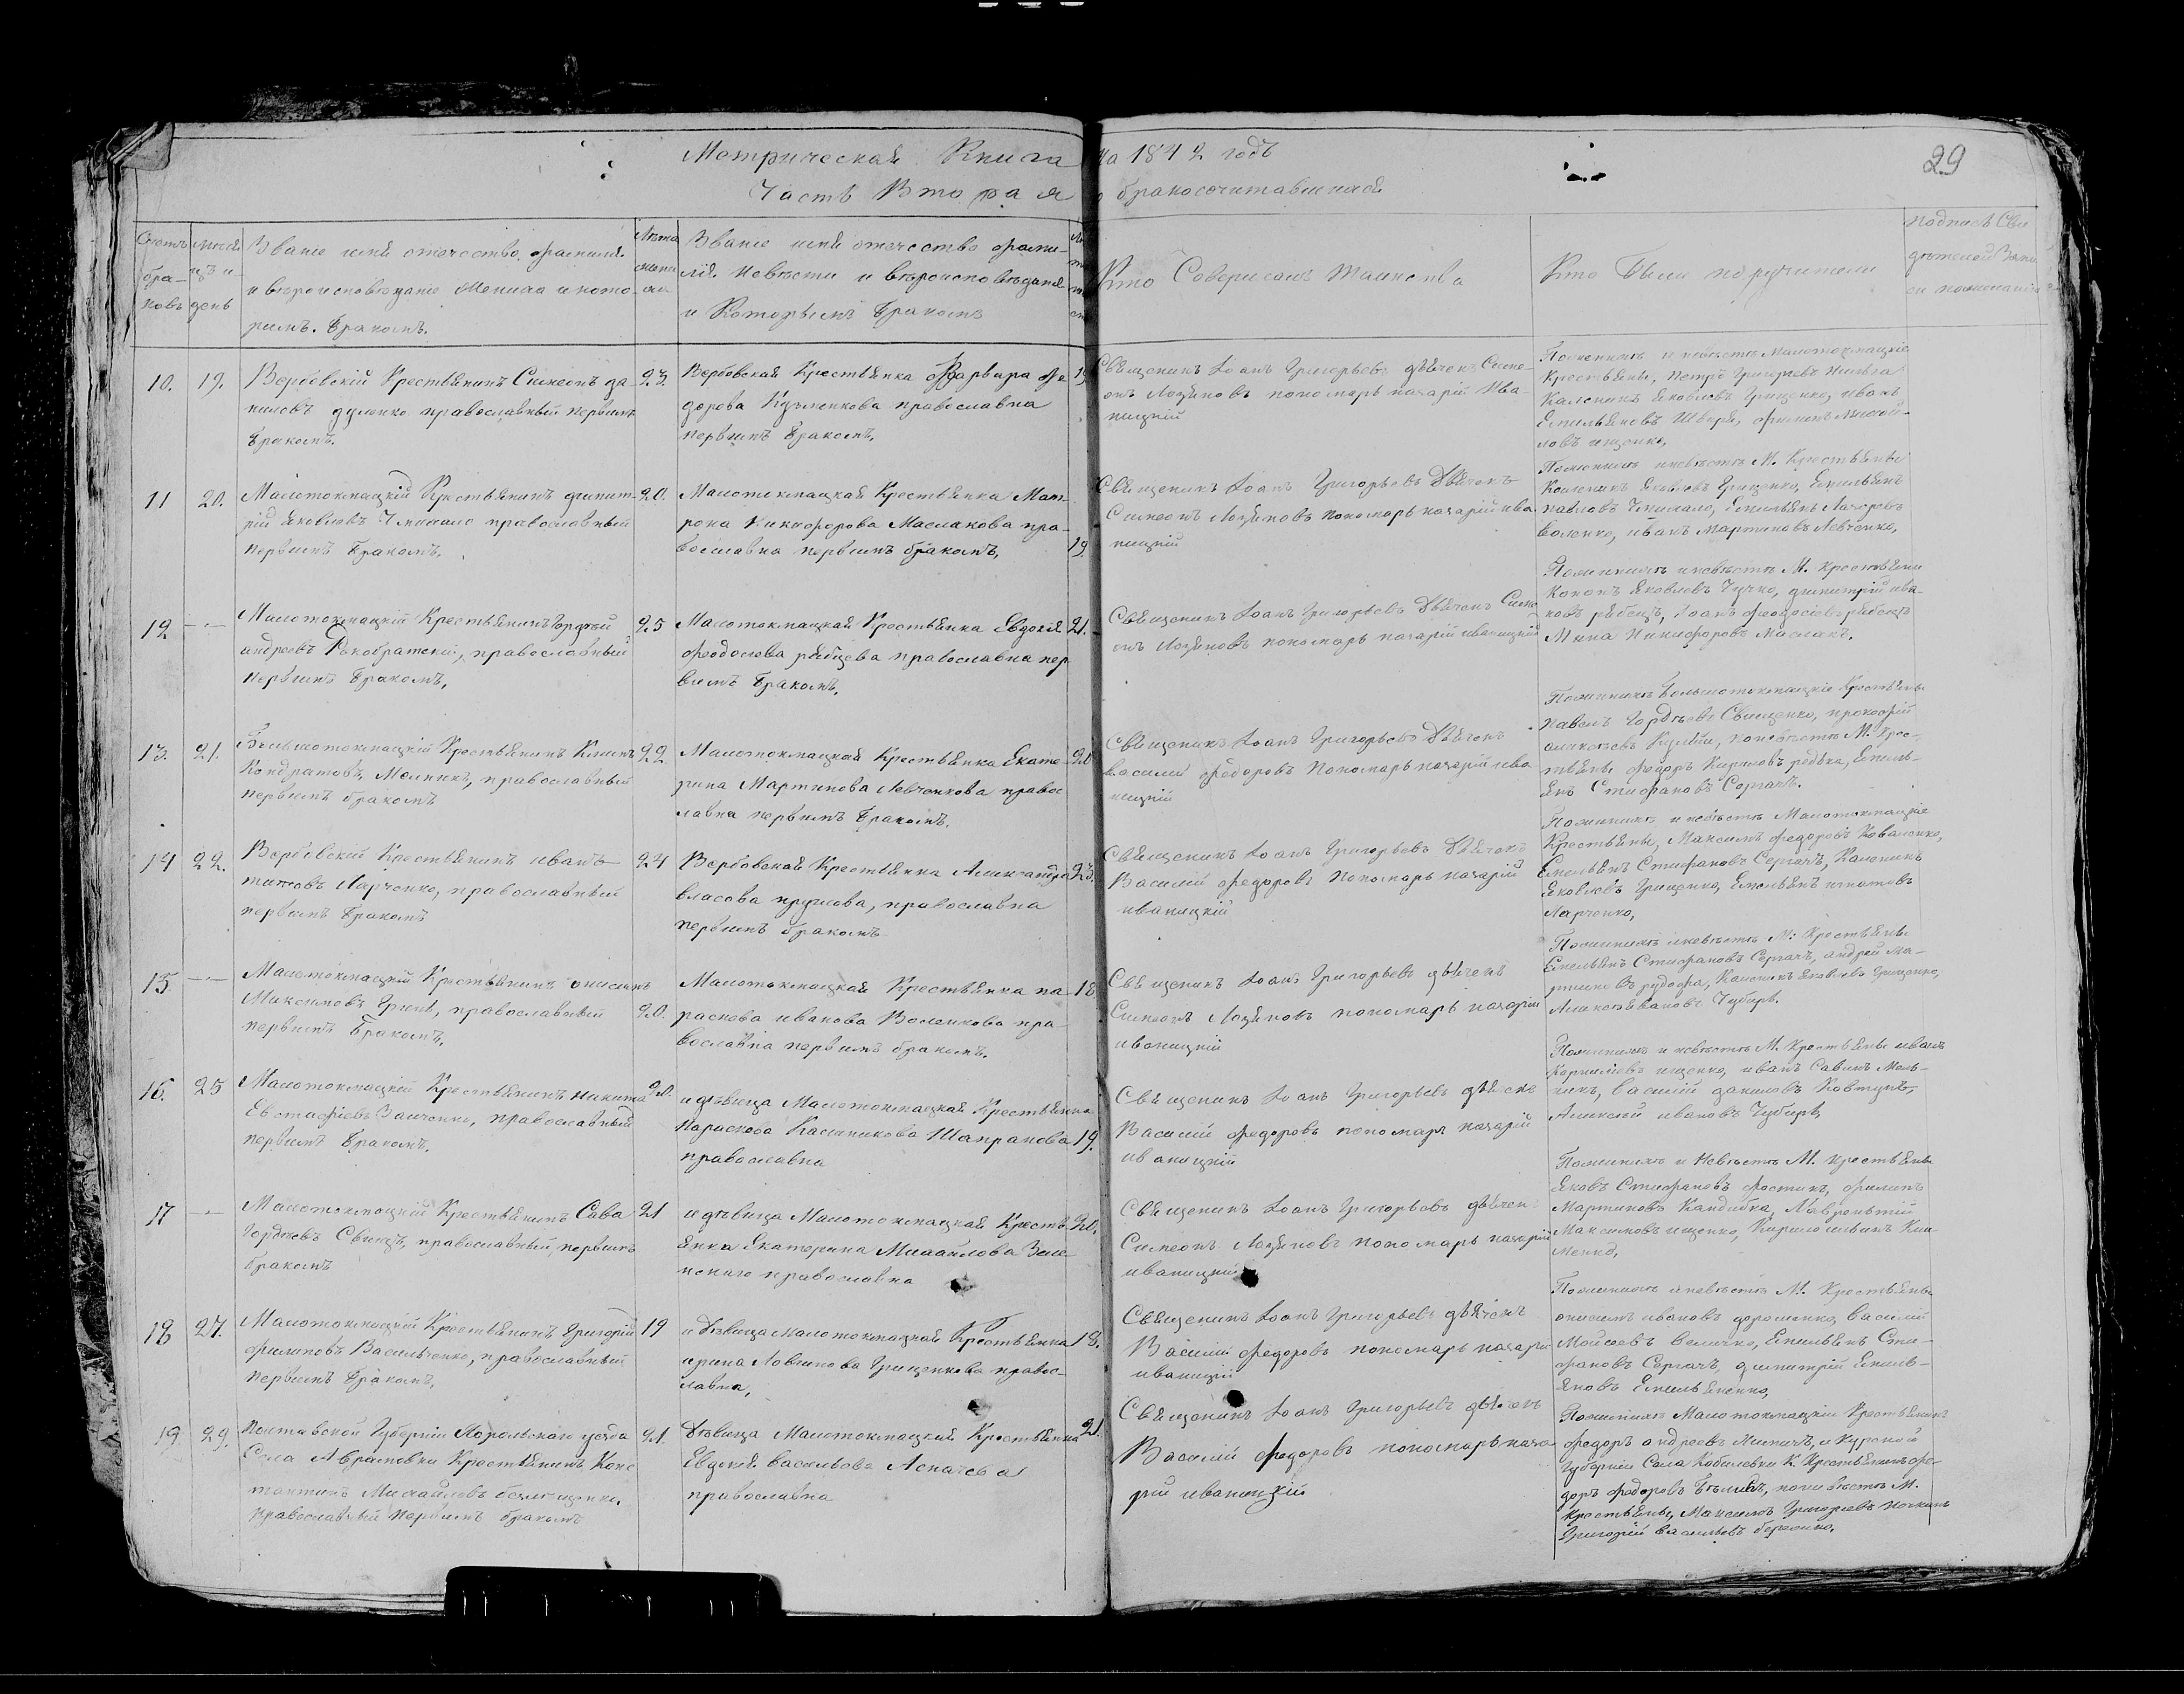 Метрическая Книга на 1842 годъ
29
Часть Вторая о бракосочитавшихся
Счетъ бра-ковъ
месяцъ и день
Званіе имя отечество фамилія
и вѣроисповѣданіе Жениха и кото-
римъ бракомъ.
Лѣта жени-ха
Званіе имя отечество фами-
лія невѣсти и вѣроисповѣданія
и Которымъ бракомъ
Кто Совершалъ таинства
Кто были поручители
подпись Сви
дѣтелей Запи
си
10. 19.
Вербовскій Крестьянинъ Симеонъ да-
ниловъ дуленко православный первимъ
бракомъ.
23.
Вербовская Крестьянка Варвара Фе-
дорова Кузменкова православна
первимъ бракомъ,
Священикъ Іоанъ Григорьевъ дьячекъ Симе-
онъ Логвиновъ пономарь назарій Ива-
ницкій
Поженихѣ и невѣстѣ Малотокмацкіе
Крестьяны, петръ Григорьевъ
Каленикъ Яковлевъ Грищенко, иванъ
Емельяновъ Шворя, филипъ
ловъ ищенко,
11 20.
Малотокмацкій Крестьянинъ димит-
рій Яковлевъ Чмихало православный
первимъ бракомъ,
20.
Малотокмацкая Крестьянка Мат
рона Никифорова Маслакова пра-
вославна первимъ бракомъ,
19.
Священикъ Іоанъ Григорьевъ Дьячекъ
Симеонъ Логвиновъ пономарь назарій ива
ницкій
Поженихѣ иневѣстѣ М. Крестьяны
Каленикъ Яковлевъ Грищенко, Емельянъ
павловъ Чмихало, Емельянъ Лазоревъ
воленко, иванъ мартиновъ Левченко,
12 -·-
Малотокмацкій Крестьянинъ Гордѣй
андреевъ православный
первимъ бракомъ,
25
Малотокмацкая Крестьянка Евдокія
феодосіева рябцева православна пер
вимъ бракомъ,
21.
Священикъ Іоанъ Григорьевъ Дьячекъ Симе
онъ Логвиновъ пономарь назарій иваницкій
Поженихѣ иневѣстѣ М. крестьяны
Кононъ Яковлевъ Чучко, димитрій ива-
новъ рябецъ, Іоанъ феодосіевъ рябецъ
Мина Никифоровъ Маслакъ.
13. 21.
Большотокмацкій Крестьянинъ Климъ
Кондратовъ, Мелникъ, православный
первимъ бракомъ
22.
Малотокмацкая Крестьянка Екате-
рина Мартинова Левченкова правос
лавна первимъ бракомъ.
20
Священикъ Іоанъ Григорьевъ Дьячекъ
василій федоровъ пономарь назарій ива
ницкій
Поженихѣ Большотокмацкіе Крестьяны
павелъ Гордѣевъ Свищенко, прокофій
алексѣевъ Кулѣш, поневѣстѣ М. Крес-
тьяны федоръ Кириловъ редька, Емель-
янъ Стифановъ Сергачъ.
14 22.
Вербовскій Крестьянинъ иванъ
титовъ Ларченко, православный
первимъ бракомъ
24
Вербовская Крестьянка Александра
власова пруглова, православна
первимъ бракомъ
23.
Священикъ Іоанъ Григорьевъ Дьячекъ
Василій федоровъ пономарь назарій
иваницкій
Поженихѣ и невѣстѣ Малотокмацкіе
Крестьяны, Максимъ федоровъ Коваленко,
Емельянъ Стифановъ Сергачъ, Каленикъ
Яковлевъ Грищенко, Емельянъ игнатовъ
Ларченко,
15 -·-
Малотокмацкій Крестьянинъ онисимъ
Максимовъ Гринь, православный
первимъ бракомъ,
20.
Малотокмацкая Крестьянка па
раскева иванова Воленкова пра
вославна первимъ бракомъ.
18
Священикъ Іоанъ Григорьевъ дьячекъ
Симеонъ Логвиновъ пономарь назарій
иваницкій
Поженихѣ иневѣстѣ М: Крестьяны
Емельянъ Стифановъ Сергачъ, андрей Ма-
ртиновъ рудофа, Каленикъ Яковлевъ Грищенко,
Алексѣй ивановъ Чубарь.
16. 25
Малотокмацкій Крестьянинъ никита
Евстафіевъ Заиченко, православный
первимъ бракомъ.
20.
и дѣвица Малотокмацкая Крестьянка
Параскева Каленикова Шапранова
православна
19.
Священикъ Іоанъ Григорьевъ дьячекъ
Василій федоровъ пономарь назарій
иваницкій
Поженихѣ и невѣстѣ М. Крестьяны иванъ
Корниліевъ ищенко, иванъ Савинъ Мель-
никъ, василій даниловъ Ковтунъ,
Алексѣй ивановъ Чубарь,
17 -·-
Малотокмацкій Крестьянинъ Сава
Гордѣевъ Свинцъ, православный первимъ
бракомъ
21
идѣвица Малотокмацкая Кресть
янка Екатерина Михайлова Зеле-
нская православна
20.
Священикъ Іоанъ Григорьевъ дьячек
Симеонъ Логвиновъ пономарь назарій
иваницкій
Поженихѣ и Невѣстѣ М. Крестьяны
Яковъ Стифановъ фостикъ, филипъ
Мартиновъ Кандибка, Лаврентій
Максимовъ ищенко, Кирило илиинъ Кли
менко,
18 27.
Малотокмацкій Крестьянинъ Григорій
филиповъ Васильченко, православный
первимъ бракомъ,
19
и Дѣвица малотокмацкая Крестьянка
ирина Логвинова Грищенкова правос-
лавна,
18.
Священикъ Іоанъ Григорьевъ дьячекъ
Василій федоровъ пономарь назарій
иваницкій
Поженихѣ иневѣстѣ М. Крестьяны
онисимъ ивановъ дороненко, василій
Мойсеевъ величко, Емельянъ Сти-
фановъ Сергачъ, димитрій Емель-
яновъ Емельяненко,
19 29.
Полтавской Губерніи Хорольскаго уезда
Села Аврамовки Крестьянинъ Конс
тантинъ Михайловъ
православный первимъ бракомъ
21.
Дѣвица Малотокмацкая Крестьянка
Евдокія васильева
православна
21.
Священикъ Іоанъ Григорьевъ дьячекъ
Василій федоровъ пономарь наза
рій иваницкій
Поженихѣ Малотокмацкіи Крестьянинъ
федоръ андреевъ Миничъ, и Курской
Губерніи Села Кобилевки К. Крестьянинъ фе-
доръ федоровъ поневѣстѣ М.
Крестьяны, Максимъ Григорьевъ
Григорій васильевъ